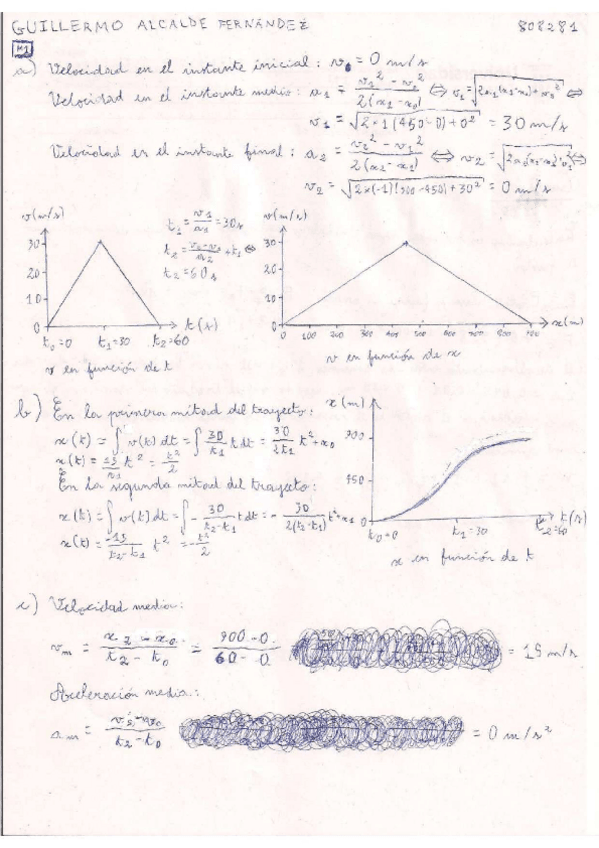 GUILLERMO ALCALDE FERNÁNDEZ 808281
M1
a) Velocidad en el instante inicial: v₀ = 0 m/s
Velocidad en el instante medio: a₁ = (v₁² - v₀²)/(2(x₁-x₀)) ⇔ v₁ = √(2a₁(x₁-x₀)+v₀²) ⇔
v₁ = √(2×1(450-0)+0²) = 30 m/s
Velocidad en el instante final: a₂ = (v₂² - v₁²)/(2(x₂-x₁)) ⇔ v₂ = √(2a₂(x₂-x₁)+v₁²) ⇔
v₂ = √(2×(-1)(900-450)+30²) = 0 m/s
v(m/s)
30
20
10
0
t₀=0 t₁=30 t₂=60
t(s)
v en función de t
t₁ = v₁/a₁ = 30s
t₂ = (v₂-v₁)/a₂ + t₁ ⇔
t₂ = 60s
v(m/s)
30
20
10
0
0 100 200 300 400 500 600 900
x(m)
v en función de x
b) En la primera mitad del trayecto:
x(t) = ∫ v(t) dt = ∫ 30/t₁ t dt = 30/2t₁ t² + x₀
x(t) = 15/t₁ t² = t²/2
En la segunda mitad del trayecto:
x(t) = ∫ v(t) dt = ∫ - 30/(t₂-t₁) t dt = - 30/(2(t₂-t₁)) t² + x₁
x(t) = -15/(t₂-t₁) t² = -t²/2
x(m)
900
450
0
t₀=0 t₁=30 t₂=60
t(s)
x en función de t
c) Velocidad media:
vₘ = (x₂ - x₀)/(t₂ - t₀) = (900 - 0)/(60 - 0) = 15 m/s
Aceleración media:
aₘ = (v₂ - v₀)/(t₂ - t₀) = 0 m/s²